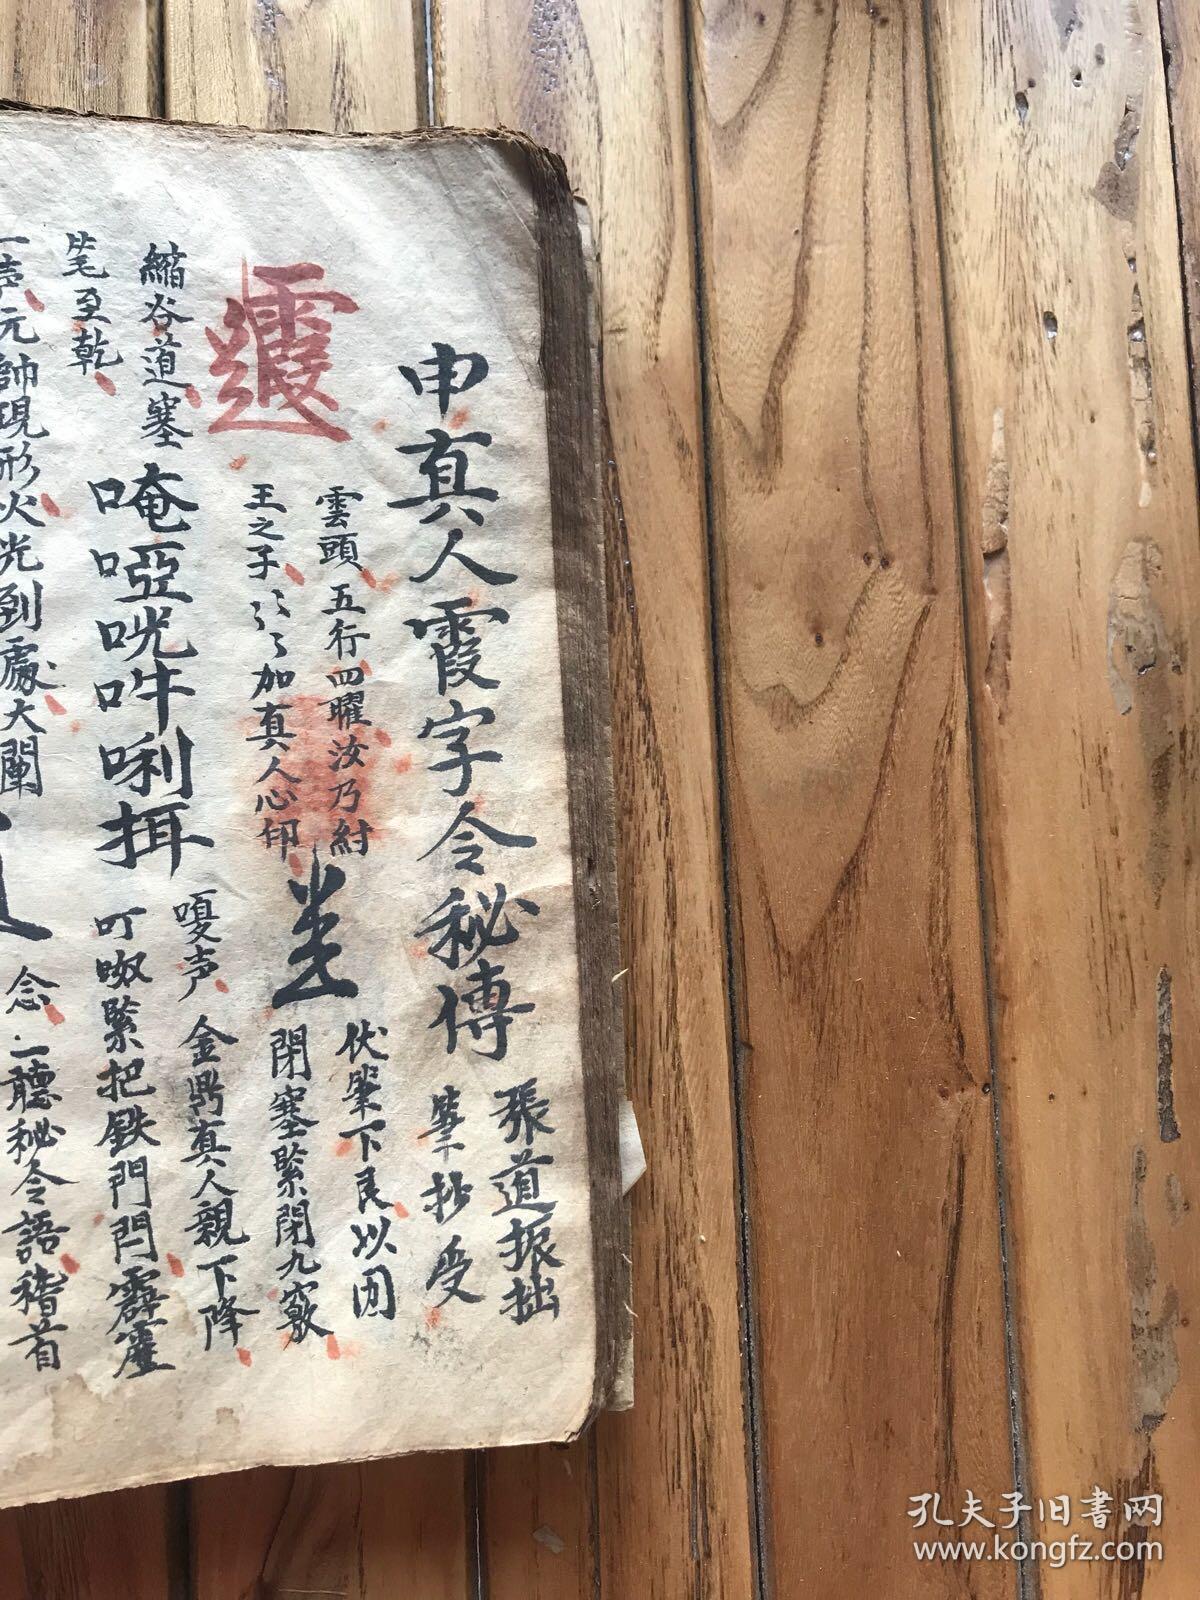 申真人霞字令秘傳
張道振拙
筆抄受
雲頭五行四曜汝乃紂
王之子
加真人心印
伏筆下良以因
閉塞緊閉九竅
縮谷道塞
笔至乾
唵啞咣吽唎挕
嗄声金鼎真人親下降
叮呶緊把鉄門閂霹靂
一声元帥現形火光到處大闡
念一聽秘令語稽首
孔夫子旧書网
www.kongfz.com